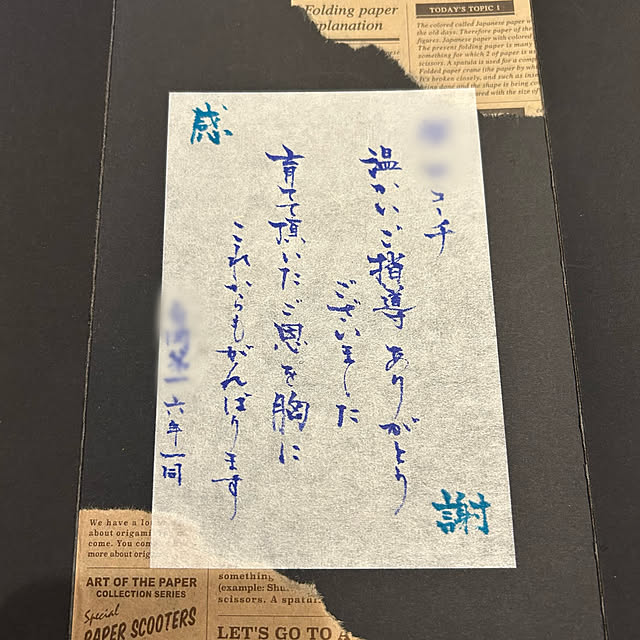 感
コーチ
温かいご指導ありがとう
ございました
育てて頂いたご恩を胸に
これからもがんばります
六年一同
謝
Folding paper
xplanation
TODAY'S TOPIC 1
The colored called Japanese paper w
the old days. Therefore paper of the
figures. Japanese paper with colored
The present folding paper is many
something for which 2 of paper is us
scissors. A spatula is used for a comp
Folded paper crane (the paper by wh
It's broken closely, and such as inst
being done and the shape is being co
ured with the size of
We have a lo
about origami
come. You com
more about orig
ART OF THE PAPER
COLLECTION SERIES
Special
PAPER SCOOTERS
something
(example: Shu
scissors. A spatu
LET'S GO TO A